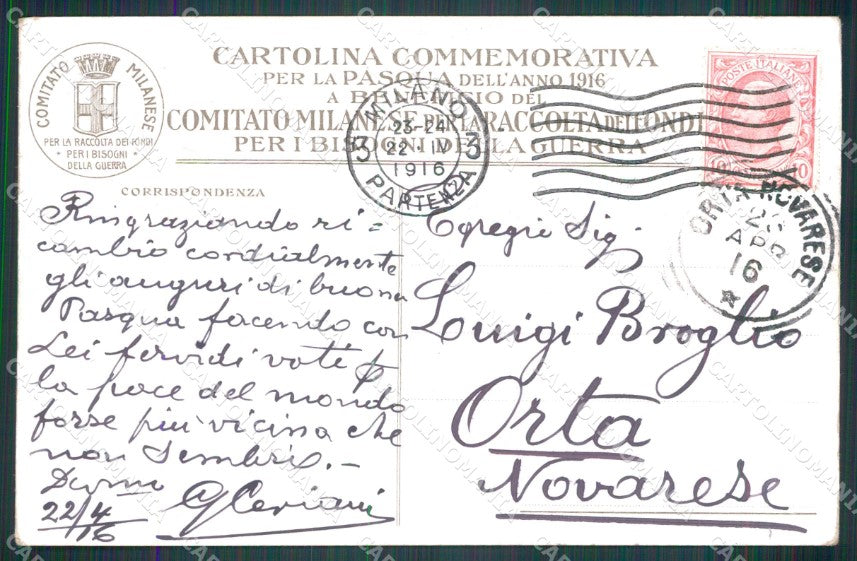 CARTOLINA COMMEMORATIVA
PER LA PASQUA DELL'ANNO 1916
A BENEFICIO DEL
COMITATO MILANESE PER LA RACCOLTA DEI FONDI
PER I BISOGNI DELLA GUERRA
COMITATO MILANESE
PER LA RACCOLTA DEI FONDI
PER I BISOGNI
DELLA GUERRA
POSTE ITALIANE
10
MILANO
23-24
22 IV
1916
PARTENZA
3 3
ORTA NOVARESE
APR
16
CORRISPONDENZA
Ringraziando ri=
cambio cordialmente
gli auguri di buona
Pasqua facendo con
Lei fervidi voti p
la pace del mondo
forse più vicina che
non sembri.-
Devmo
GCeriani
22/4
16
Egregio Sig.
Luigi Broglio
Orta
Novarese
CARTOLINOMANIA